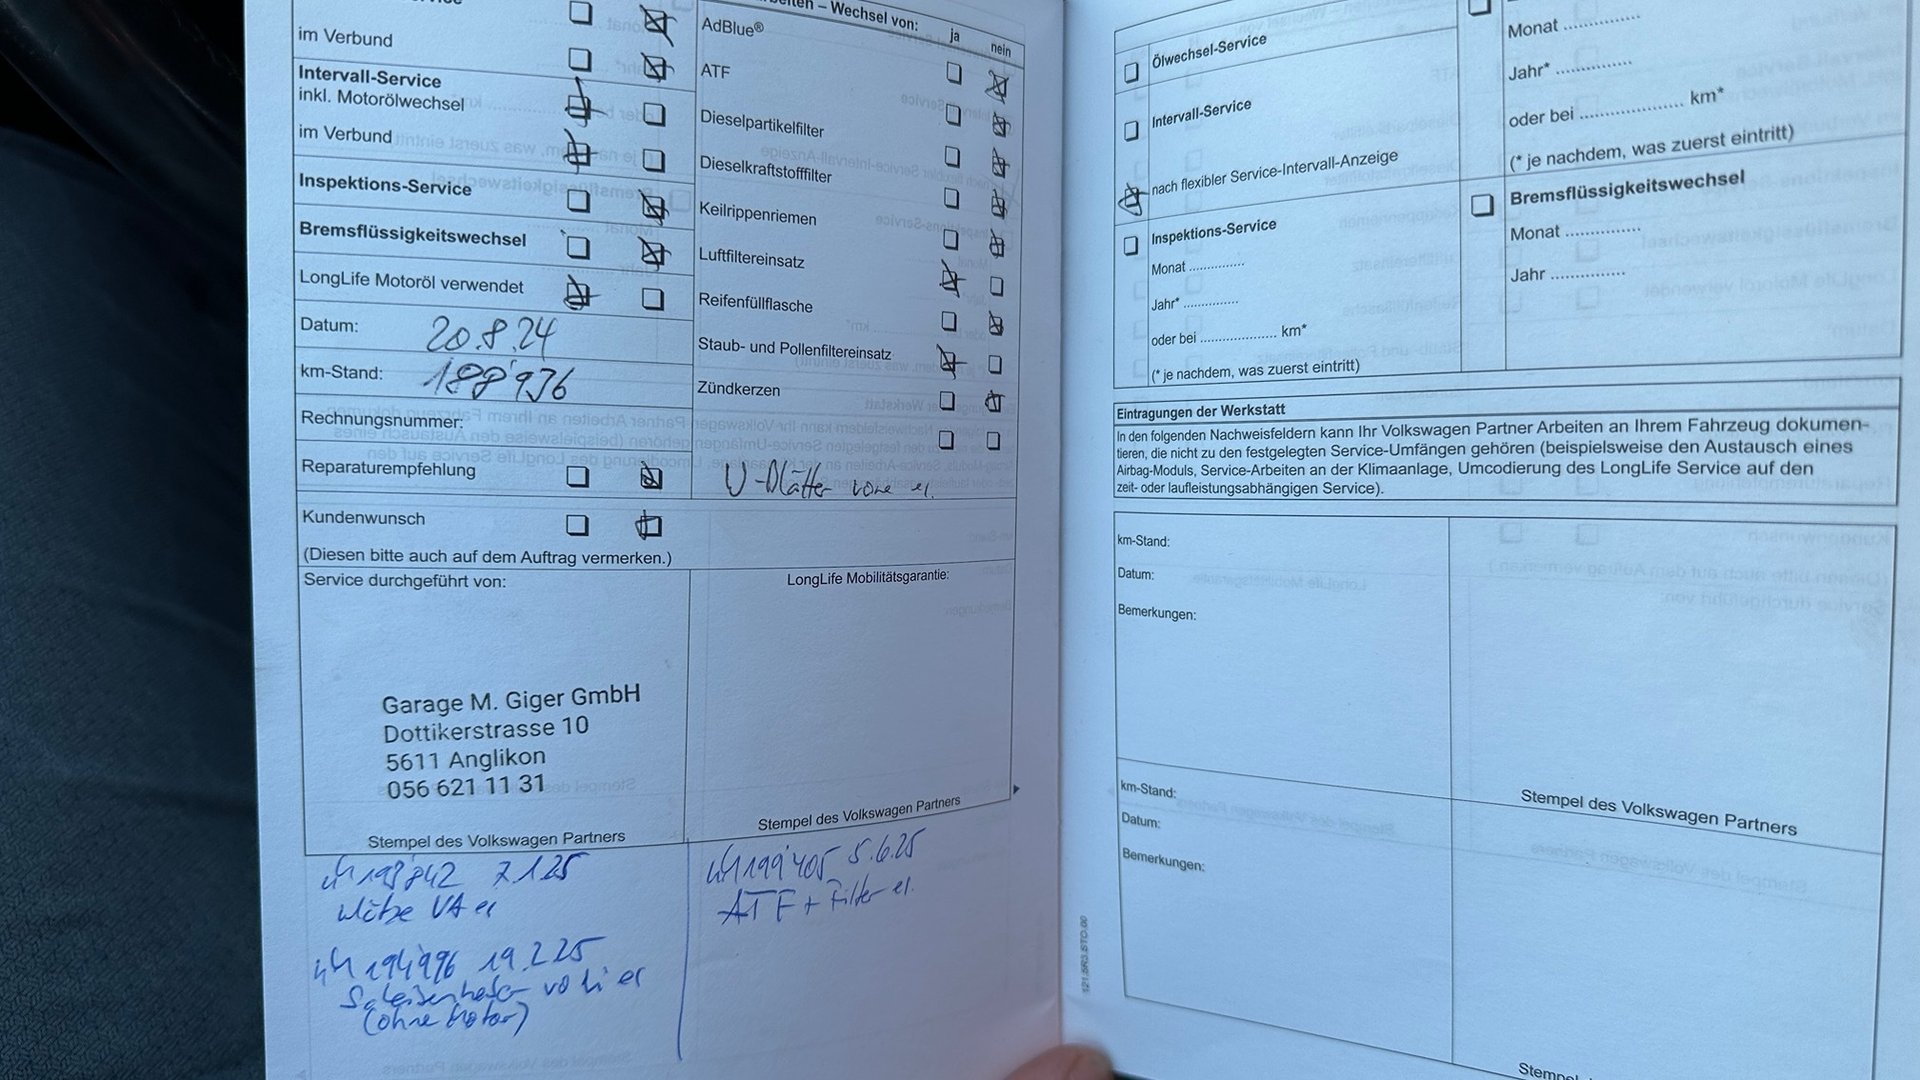 Arbeiten – Wechsel von:
ja nein
AdBlue®
im Verbund
Intervall-Service
inkl. Motorölwechsel
im Verbund
Inspektions-Service
Bremsflüssigkeitswechsel
LongLife Motoröl verwendet
Datum: 20.8.24
km-Stand: 188'936
Rechnungsnummer:
Reparaturempfehlung
Kundenwunsch
(Diesen bitte auch auf dem Auftrag vermerken.)
Service durchgeführt von:
Garage M. Giger GmbH
Dottikerstrasse 10
5611 Anglikon
056 621 11 31
Stempel des Volkswagen Partners
7.1.25
VA er
194'996 19.2.25
(ohne Motor)
ATF
Dieselpartikelfilter
Dieselkraftstofffilter
Keilrippenriemen
Luftfiltereinsatz
Reifenfüllflasche
Staub- und Pollenfiltereinsatz
Zündkerzen
W-Blätter vorne er.
LongLife Mobilitätsgarantie:
Stempel des Volkswagen Partners
199'405 5.6.25
ATF + Filter er.
Ölwechsel-Service
Intervall-Service
nach flexibler Service-Intervall-Anzeige
Inspektions-Service
Monat ...............
Jahr* ...............
oder bei .................... km*
(* je nachdem, was zuerst eintritt)
Monat ...............
Jahr* ...............
oder bei .................... km*
(* je nachdem, was zuerst eintritt)
Bremsflüssigkeitswechsel
Monat ...............
Jahr ...............
Eintragungen der Werkstatt
In den folgenden Nachweisfeldern kann Ihr Volkswagen Partner Arbeiten an Ihrem Fahrzeug dokumen-
tieren, die nicht zu den festgelegten Service-Umfängen gehören (beispielsweise den Austausch eines
Airbag-Moduls, Service-Arbeiten an der Klimaanlage, Umcodierung des LongLife Service auf den
zeit- oder laufleistungsabhängigen Service).
km-Stand:
Datum:
Bemerkungen:
Stempel des Volkswagen Partners
km-Stand:
Datum:
Bemerkungen:
121.5RS.STO.00